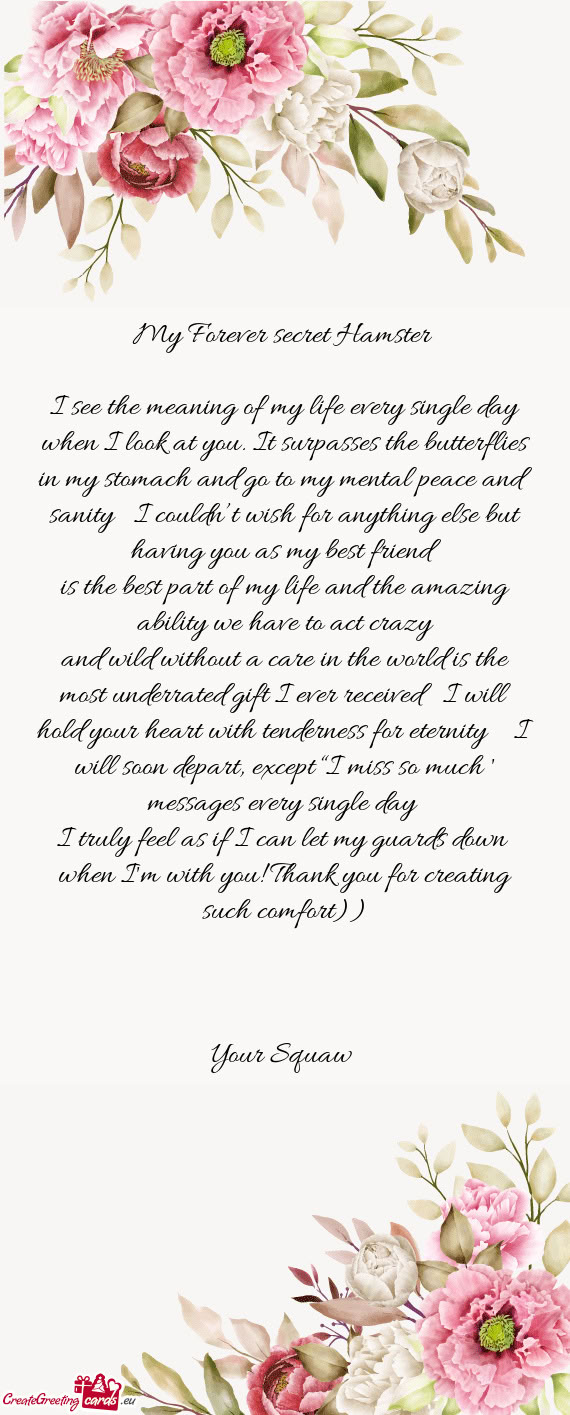 My Forever secret Hamster
I see the meaning of my life every single day
when I look at you. It surpasses the butterflies
in my stomach and go to my mental peace and
sanity I couldn't wish for anything else but
having you as my best friend
is the best part of my life and the amazing
ability we have to act crazy
and wild without a care in the world is the
most underrated gift I ever received I will
hold your heart with tenderness for eternity I
will soon depart, except “I miss so much '
messages every single day
I truly feel as if I can let my guards down
when I'm with you! Thank you for creating
such comfort) )
Your Squaw
CreateGreeting cards .eu